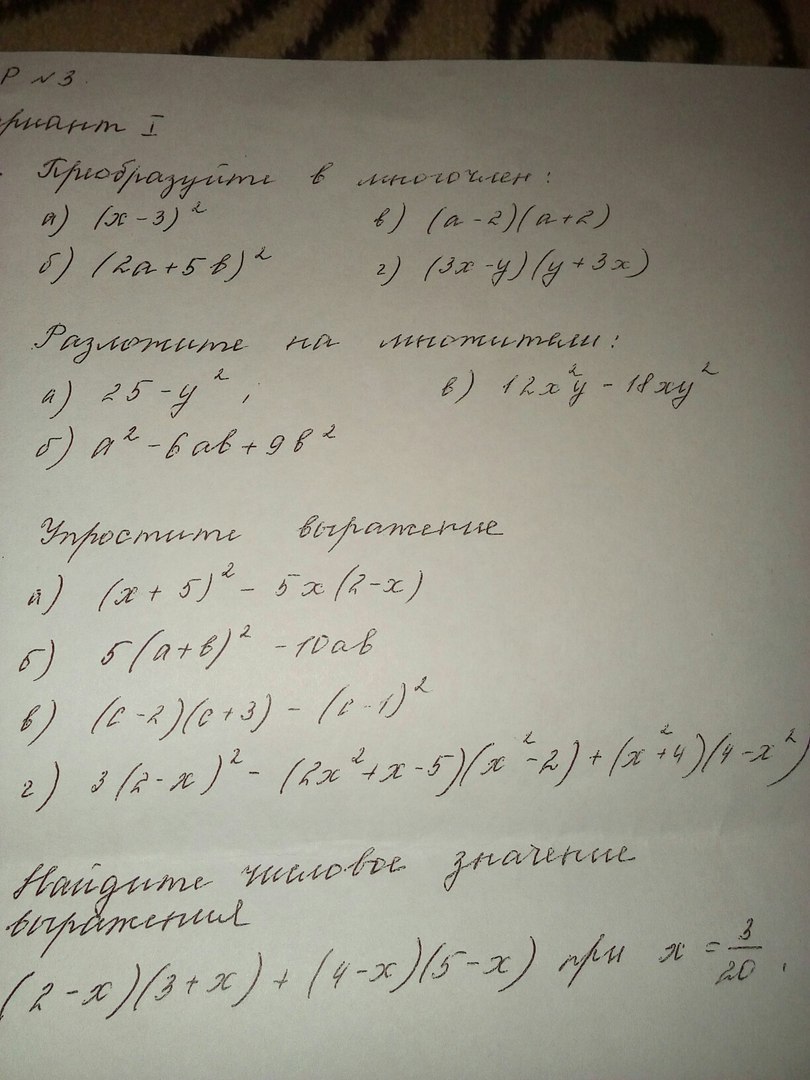 Р №3.
риант I
Преобразуйте в многочлен:
а) (x-3)² в) (a-2)(a+2)
б) (2a+5b)² г) (3x-y)(y+3x)
Разложите на множители:
а) 25-y²; в) 12x²y-18xy²
б) a²-6ab+9b²
Упростите выражение
а) (x+5)²-5x(2-x)
б) 5(a+b)²-10ab
в) (c-2)(c+3)-(c-1)²
г) 3(2-x)²-(2x²+x-5)(x²-2)+(x²+4)(4-x²)
Найдите числовое значение
выражения
(2-x)(3+x)+(4-x)(5-x) при x=3/20.